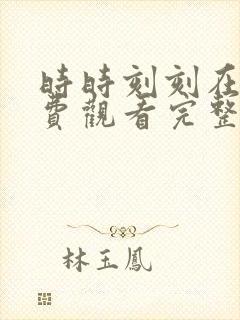 時時刻刻在
費觀看完整
林玉鳳